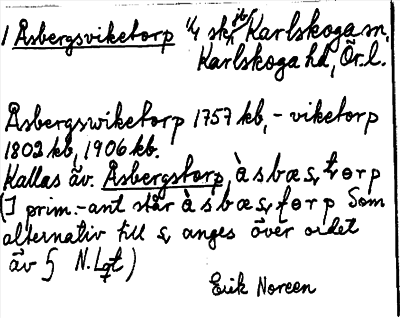 1 Åsbergsviketorp 1/4 sk, jb, Karlskoga sn,
Karlskoga hd, Ör. l.
Åsbergswiketorp 1757 kb, - viketorp
1802 kb, 1906 kb.
Kallas äv. Åsbergstorp, à s b æ ʂ ʈ ɵ r p
(I prim.-ant står à s b æ ʂ ʈ ɵ r p Som
alternativ till ʂ anges över ordet
äv § N. Lqt)
Erik Noreen